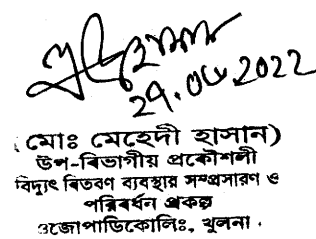 29.06.2022
(মোঃ মেহেদী হাসান)
উপ-বিভাগীয় প্রকৌশলী
বিদ্যুৎ বিতরণ ব্যবস্থার সম্প্রসারণ ও
পরিবর্ধন প্রকল্প
ওজোপাডিকোলিঃ, খুলনা।